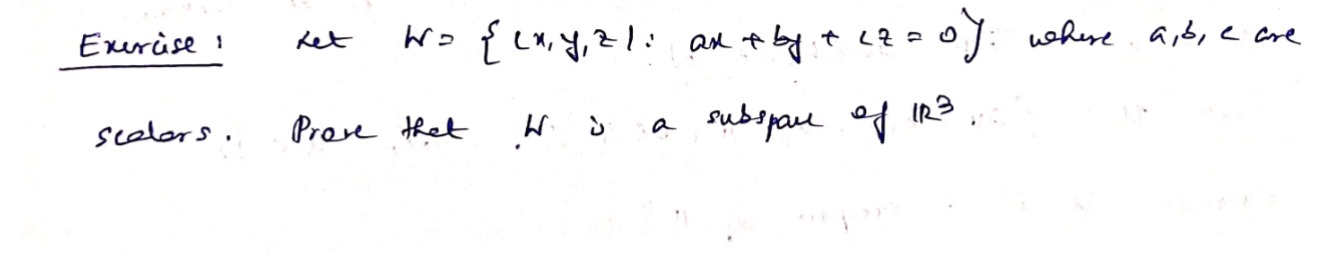 Exercise : Let W = { (x, y, z) : ax + by + cz = 0 }. where a, b, c are
scalars. Prove that W is a subspace of ℝ³.